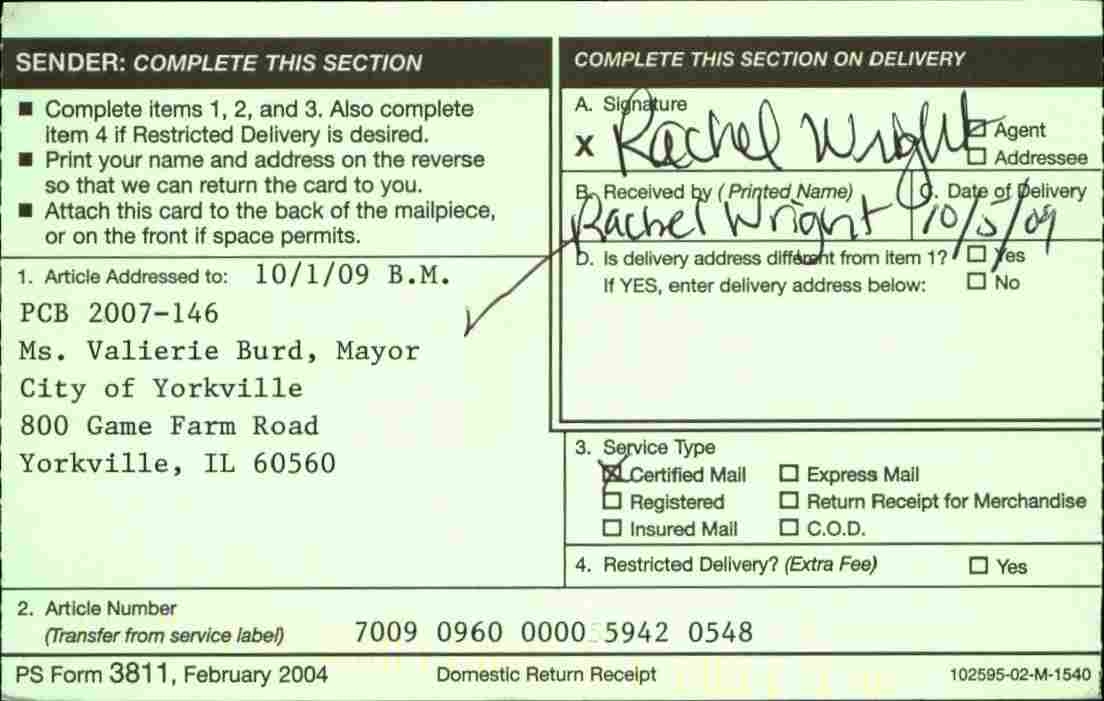 SENDER: COMPLETE THIS SECTION
■ Complete items 1, 2, and 3. Also complete
item 4 if Restricted Delivery is desired.
■ Print your name and address on the reverse
so that we can return the card to you.
■ Attach this card to the back of the mailpiece,
or on the front if space permits.
1. Article Addressed to: 10/1/09 B.M.
PCB 2007-146
Ms. Valierie Burd, Mayor
City of Yorkville
800 Game Farm Road
Yorkville, IL 60560
COMPLETE THIS SECTION ON DELIVERY
A. Signature
X Rachel Wright
☐ Agent
☐ Addressee
B. Received by (Printed Name)
Rachel Wright
C. Date of Delivery
10/5/09
D. Is delivery address different from item 1? ☐ Yes
If YES, enter delivery address below: ☐ No
3. Service Type
☒ Certified Mail ☐ Express Mail
☐ Registered ☐ Return Receipt for Merchandise
☐ Insured Mail ☐ C.O.D.
4. Restricted Delivery? (Extra Fee) ☐ Yes
2. Article Number
(Transfer from service label) 7009 0960 0000 5942 0548
PS Form 3811, February 2004 Domestic Return Receipt 102595-02-M-1540